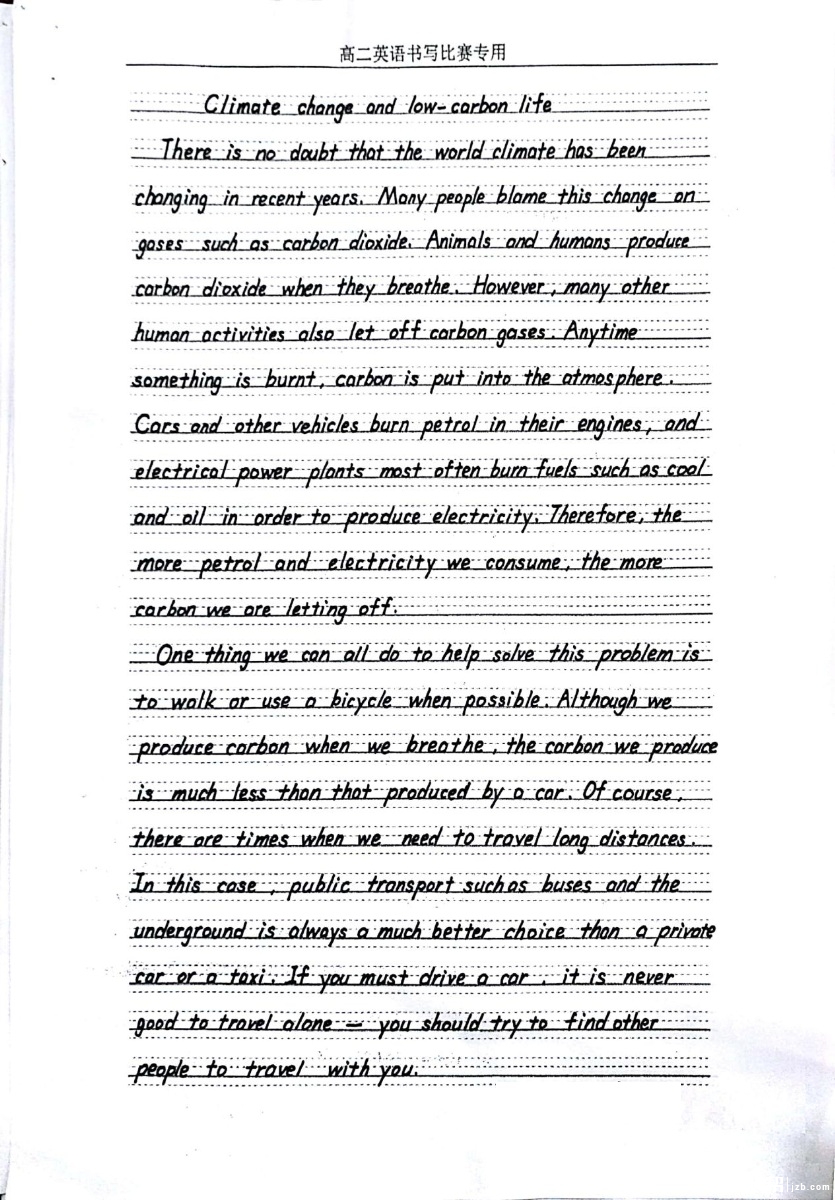 高二英语书写比赛专用
Climate change and low-carbon life
There is no doubt that the world climate has been
changing in recent years. Many people blame this change on
gases such as carbon dioxide. Animals and humans produce
carbon dioxide when they breathe. However, many other
human activities also let off carbon gases. Anytime
something is burnt, carbon is put into the atmosphere.
Cars and other vehicles burn petrol in their engines, and
electrical power plants most often burn fuels such as coal
and oil in order to produce electricity. Therefore, the
more petrol and electricity we consume, the more
carbon we are letting off.
One thing we can all do to help solve this problem is
to walk or use a bicycle when possible. Although we
produce carbon when we breathe, the carbon we produce
is much less than that produced by a car. Of course,
there are times when we need to travel long distances.
In this case, public transport such as buses and the
underground is always a much better choice than a private
car or a taxi. If you must drive a car, it is never
good to travel alone — you should try to find other
people to travel with you.
jzb.com